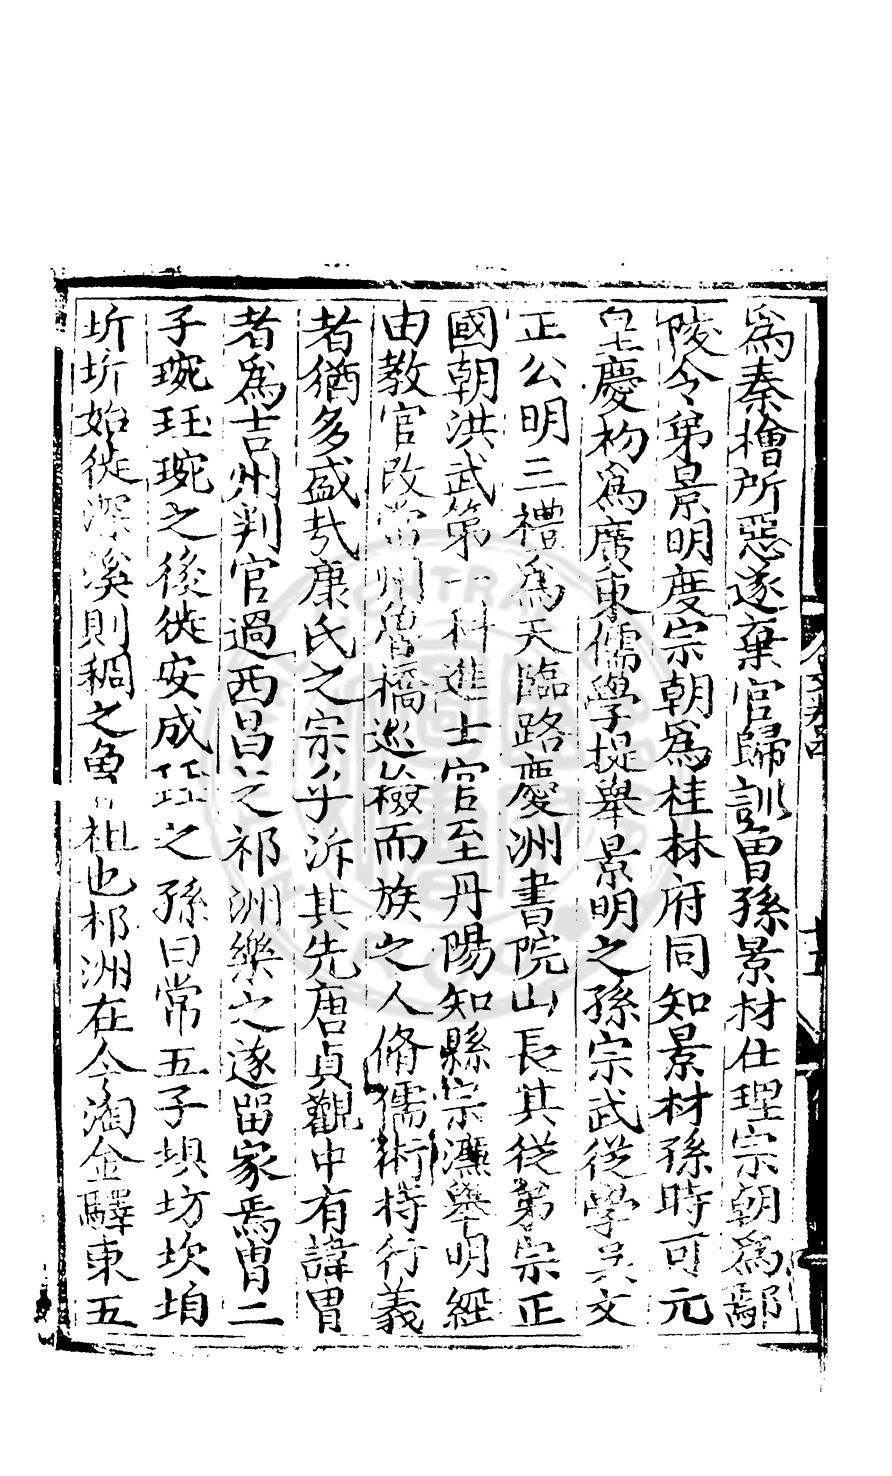 為秦檜所惡遂棄官歸訓曽孫景材仕理宗朝為鄢
陵令弟景明度宗朝為桂林府同知景材孫時可元
皇慶初為廣東儒學提舉景明之孫宗武從學吳文
正公明三禮為天臨路慶洲書院山長其從弟宗正
國朝洪武第一科進士官至丹陽知縣宗濂舉明經
由教官改常州魯橋巡檢而族之人脩儒術持行義
者猶多盛㢤康氏之宗乎泝其先唐貞觀中有諱胄
者為吉州判官過西昌之祁洲樂之遂留家焉胄二
子琬珏琬之後徙安成珏之孫曰常五子垻坊坎垍
圻圻始徙深溪則稠之祖也祁洲在今淘金驛東五